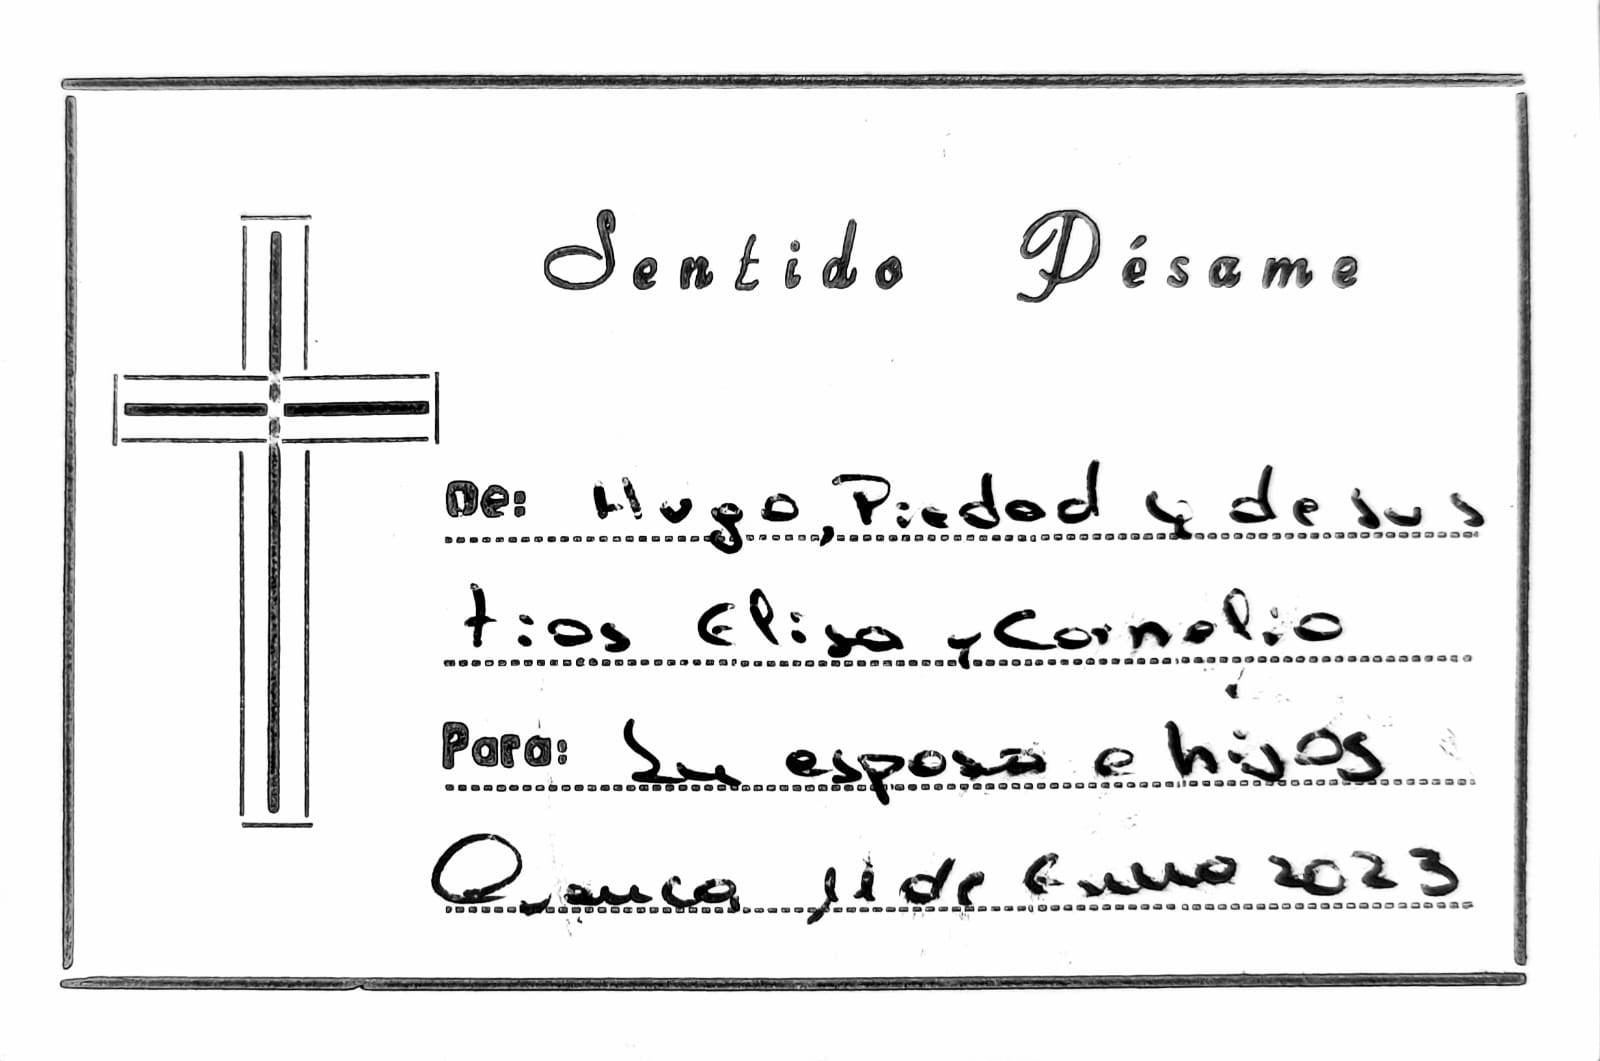 Sentido Pésame
De: Hugo, Piedad y de sus
tios Elisa y Cornelio
Para: Su esposa e hijos
Arauca 11 de Enero 2023